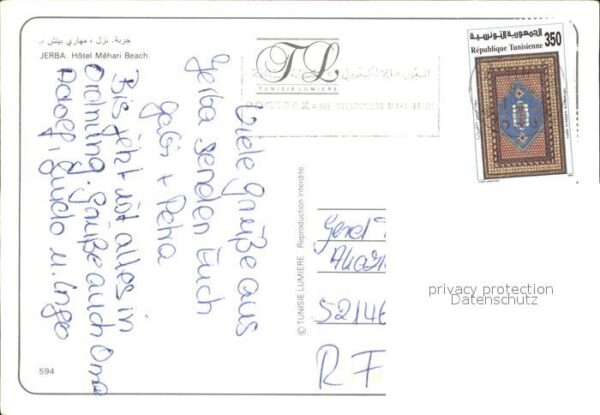 جربة. نزل ، مهاري بيتش ،.
JERBA. Hôtel Méhari Beach.
TL
TUNISIE LUMIERE
الجمهورية التونسية
350
République Tunisienne
Viele Grüße aus
Jerba senden Euch
Gabi + Petra
Bis jetzt ist alles in
Ordnung. Grüße auch Oma
Adolf, Guido u. Ingo
© TUNISIE LUMIERE Reproduction interdite.
52146
privacy protection
Datenschutz
594